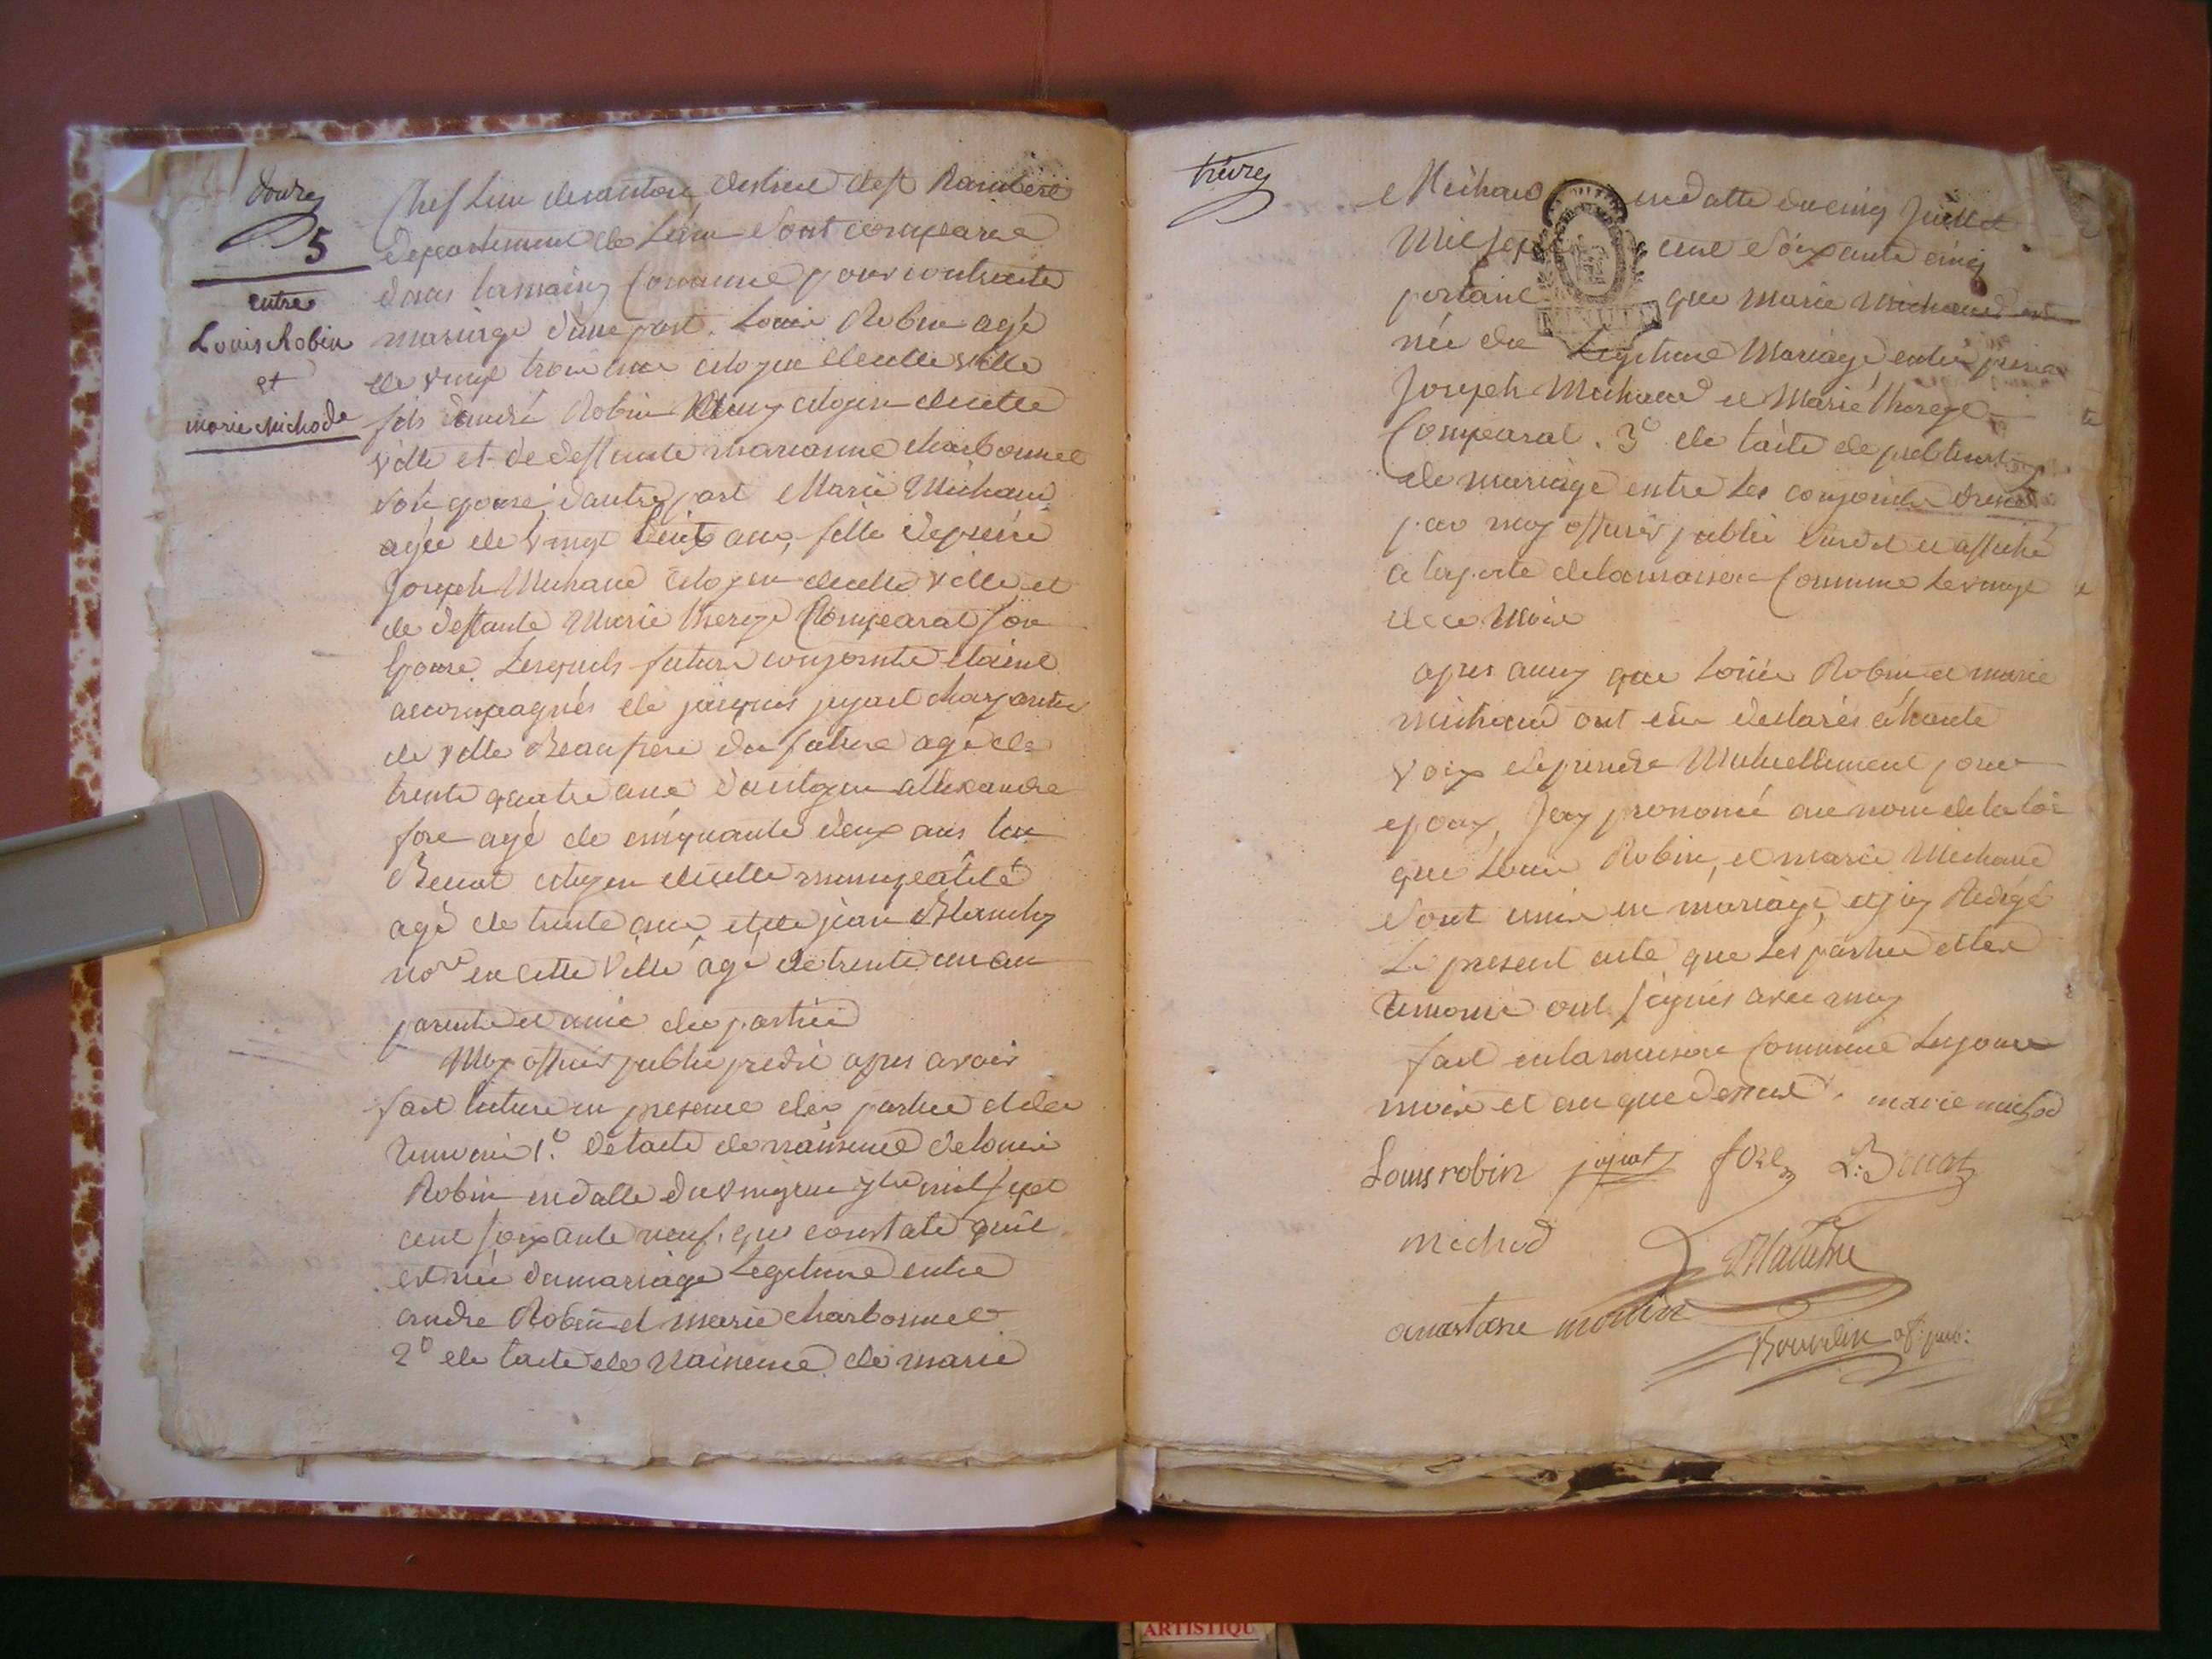 douze
5
entre
Louis Robin
et
marie Michode
Chef Lieu de canton district de st Rambert
departement de Lain sont comparus
dans la maison Commune pour contracter
mariage d'une part Louis Robin agé
de vingt trois ans citoyen de cette ville
fils dandré Robin citoyen de cette
ville et de deffunte marianne charbonnel
son epouse, d'autre part Marie Michaud
agée de vingt huit ans, fille de pierre
Joseph Michaud Citoyen de cette ville et
de deffunte Marie therese Comparat son
Epouse. Lesquels futurs conjoints etoient
accompagnés de jacques jujat charpentier
de ville Beaufrere du futur agé de
trente quatre ans du citoyen allexandre
fore agé de cinquante deux ans
Benat citoyen de cette municipalité
agé de trente ans, et de jean Blanchy
nore en cette Ville agé de trente un an
parents et amis des parties
Moy officier public predit apres avoir
fait lecture en presence des parties et des
temoins 1.º de lacte de naissance de louis
Robin en datte du vingt un mil sept
cent soixante neuf. qui constate quil
est née du mariage Legitime entre
andre Robin et marie charbonnel
2º de lacte de Naissence de marie
treize
Michaud en datte du cinq Juillet
Mil sept cent soixante cinq
portant que marie Michaud
née du Legitime Mariage entre pierre
Joseph Michaud et Marie therese
Comparat. 3º de lacte de publication
de mariage entre Les conjoints dressé
par moy officier public et affiché
a la porte de la maison Commune le vingt
de ce Mois
apres aussy que Louis Robin et marie
michaud ont eu declarés a haute
voix de prendre Mutuellement pour
epoux, Jay prononcé au nom de la loi
que Louis Robin, et marie Michaud
sont unis en mariage, et jay Redigé
Le present acte que Les parties et les
temoins ont signés avec moy
fait en la maison Commune Les jour
mois et an que dessus. marie michod
Louis robin jujat fore L: Benat
michod
anastasie
of: pub:
ARTISTIQU